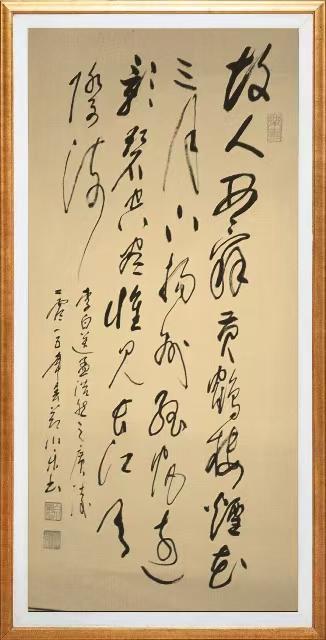 故人西辭黃鶴樓煙花
三月下揚州孤帆遠
影碧空盡惟見長江天
際流
李白送孟浩然之廣陵
二零一五年春